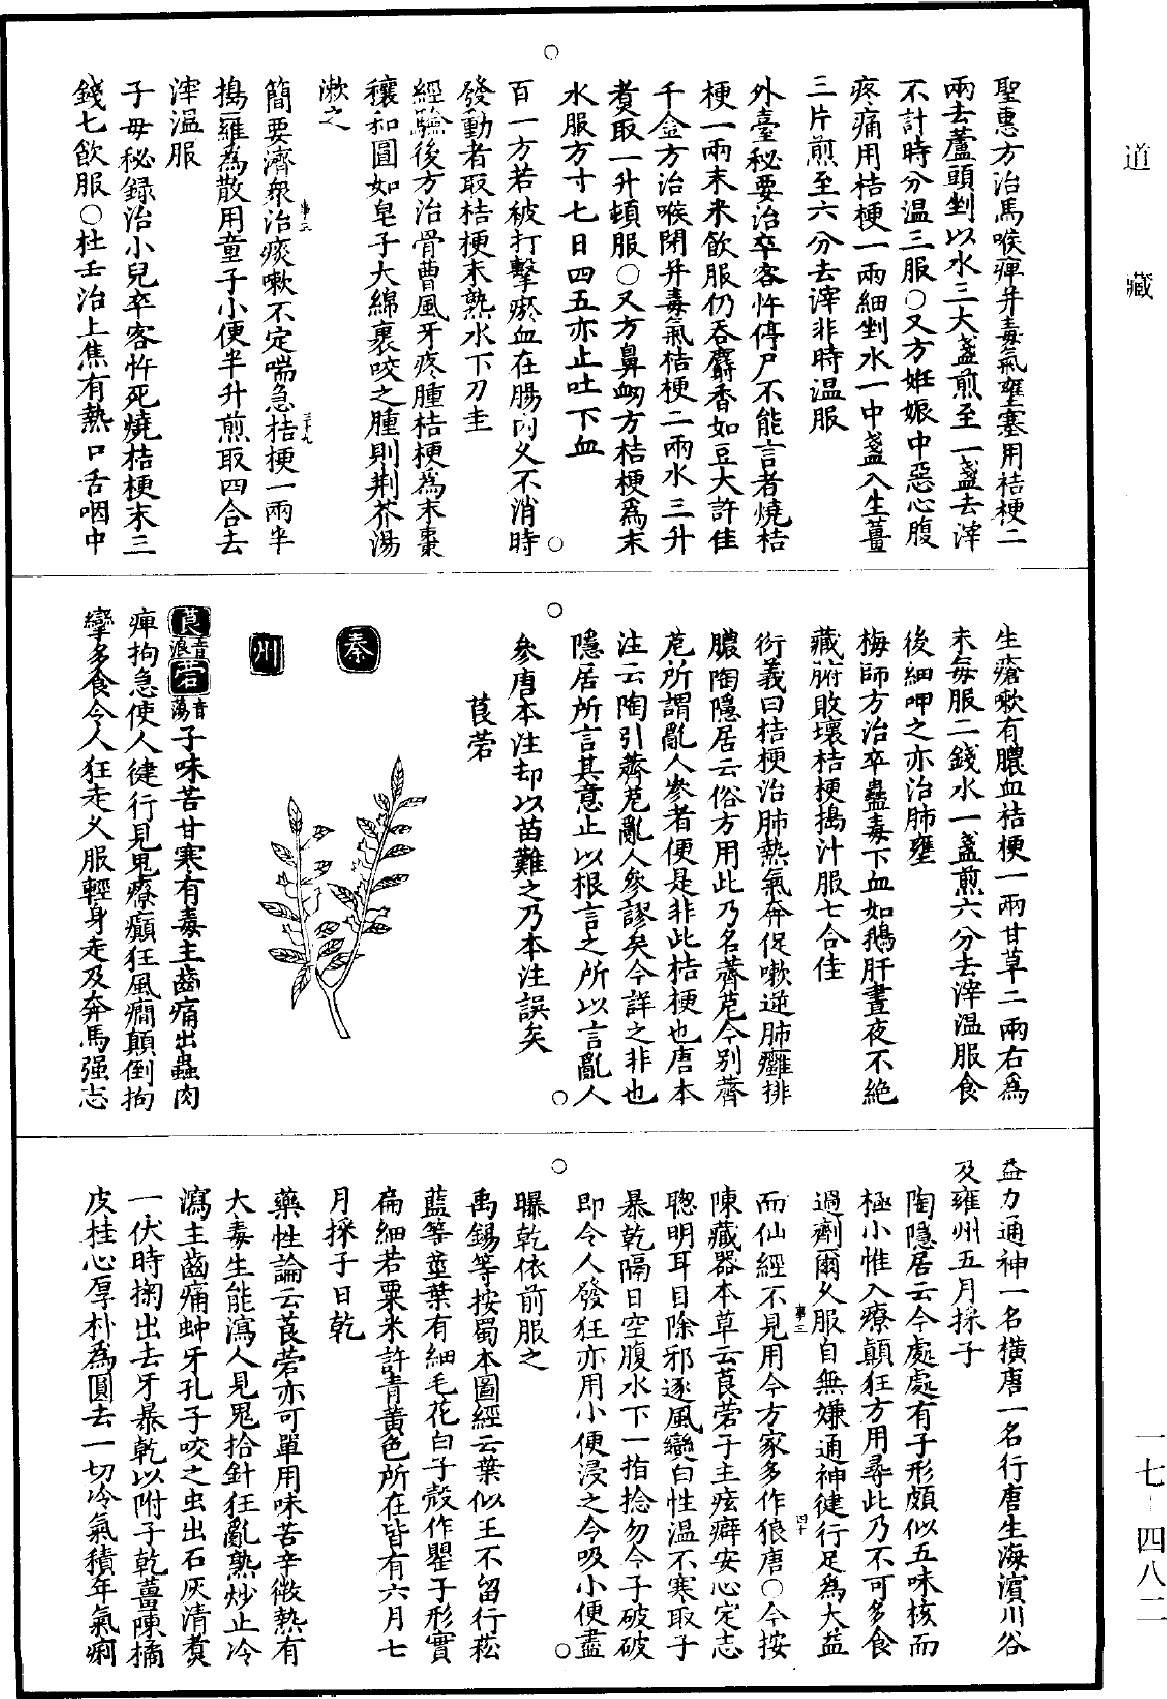 道藏
聖惠方治馬喉痺并毒氣壅塞用桔梗二
兩去蘆頭剉以水三大盞煎至一盞去滓
不計時分温三服○又方姙娠中惡心腹
疼痛用桔梗一兩細剉水一中盞入生薑
三片煎至六分去滓非時温服
外臺秘要治卒客忤停尸不能言者燒桔
梗一兩末米飲服仍吞麝香如豆大許佳
千金方治喉閉并毒氣桔梗二兩水三升
煑取一升頓服○又方鼻衂方桔梗爲末
水服方寸七日四五亦止吐下血
百一方若被打擊瘀血在腸内乆不消時
發動者取桔梗末熟水下刀圭
經驗後方治骨曹風牙疼腫桔梗爲末棗
穰和圓如皂子大綿裹咬之腫則荆芥湯
漱之
簡要濟衆治痰嗽不定喘急桔梗一兩半
擣羅為散用童子小便半升煎取四合去
滓温服
子母秘録治小兒卒客忤死燒桔梗末三
錢七飲服○杜壬治上焦有熱口舌咽中
生瘡嗽有膿血桔梗一兩甘草二兩右爲
末每服二錢水一盞煎六分去滓温服食
後細呷之亦治肺壅
梅師方治卒蠱毒下血如鵝肝晝夜不絶
藏腑敗壞桔梗擣汁服七合佳
衍義曰桔梗治肺熱氣奔促嗽逆肺癰排
膿陶隱居云俗方用此乃名薺苨今别薺
苨所謂亂人參者便是非此桔梗也唐本
注云陶引薺苨亂人參謬矣今詳之非也
隱居所言其意止以根言之所以言亂人
參唐本注却以苗難之乃本注誤矣
莨菪
秦
州
莨音浪菪音蕩子味苦甘寒有毒主齒痛出蟲肉
痺拘急使人徤行見鬼療癲狂風癇顛倒拘
攣多食令人狂走乆服輕身走及奔馬强志
益力通神一名横唐一名行唐生海濵川谷
及雍州五月採子
陶隱居云今處處有子形頗似五味核而
極小惟入療顛狂方用尋此乃不可多食
過劑爾乆服自無嫌通神徤行足為大益
而仙經不見用今方家多作狼唐○今按
陳藏器本草云莨菪子主痃癖安心定志
聰明耳目除邪逐風變白性温不寒取子
暴乾隔日空腹水下一指捻勿令子破破
即令人發狂亦用小便浸之令吸小便盡
曝乾依前服之
禹錫等按蜀本圖經云葉似王不留行菘
藍等莖葉有細毛花白子殼作罌子形實
扁細若粟米許青黄色所在皆有六月七
月採子日乾
藥性論云莨菪亦可單用味苦辛微熱有
大毒生能瀉人見鬼拾針狂亂熱炒止冷
瀉主齒痛蚛牙孔子咬之虫出石灰清煑
一伏時掬出去牙暴乾以附子乾薑陳橘
皮桂心厚朴為圓去一切冷氣積年氣痢
一七-四八二